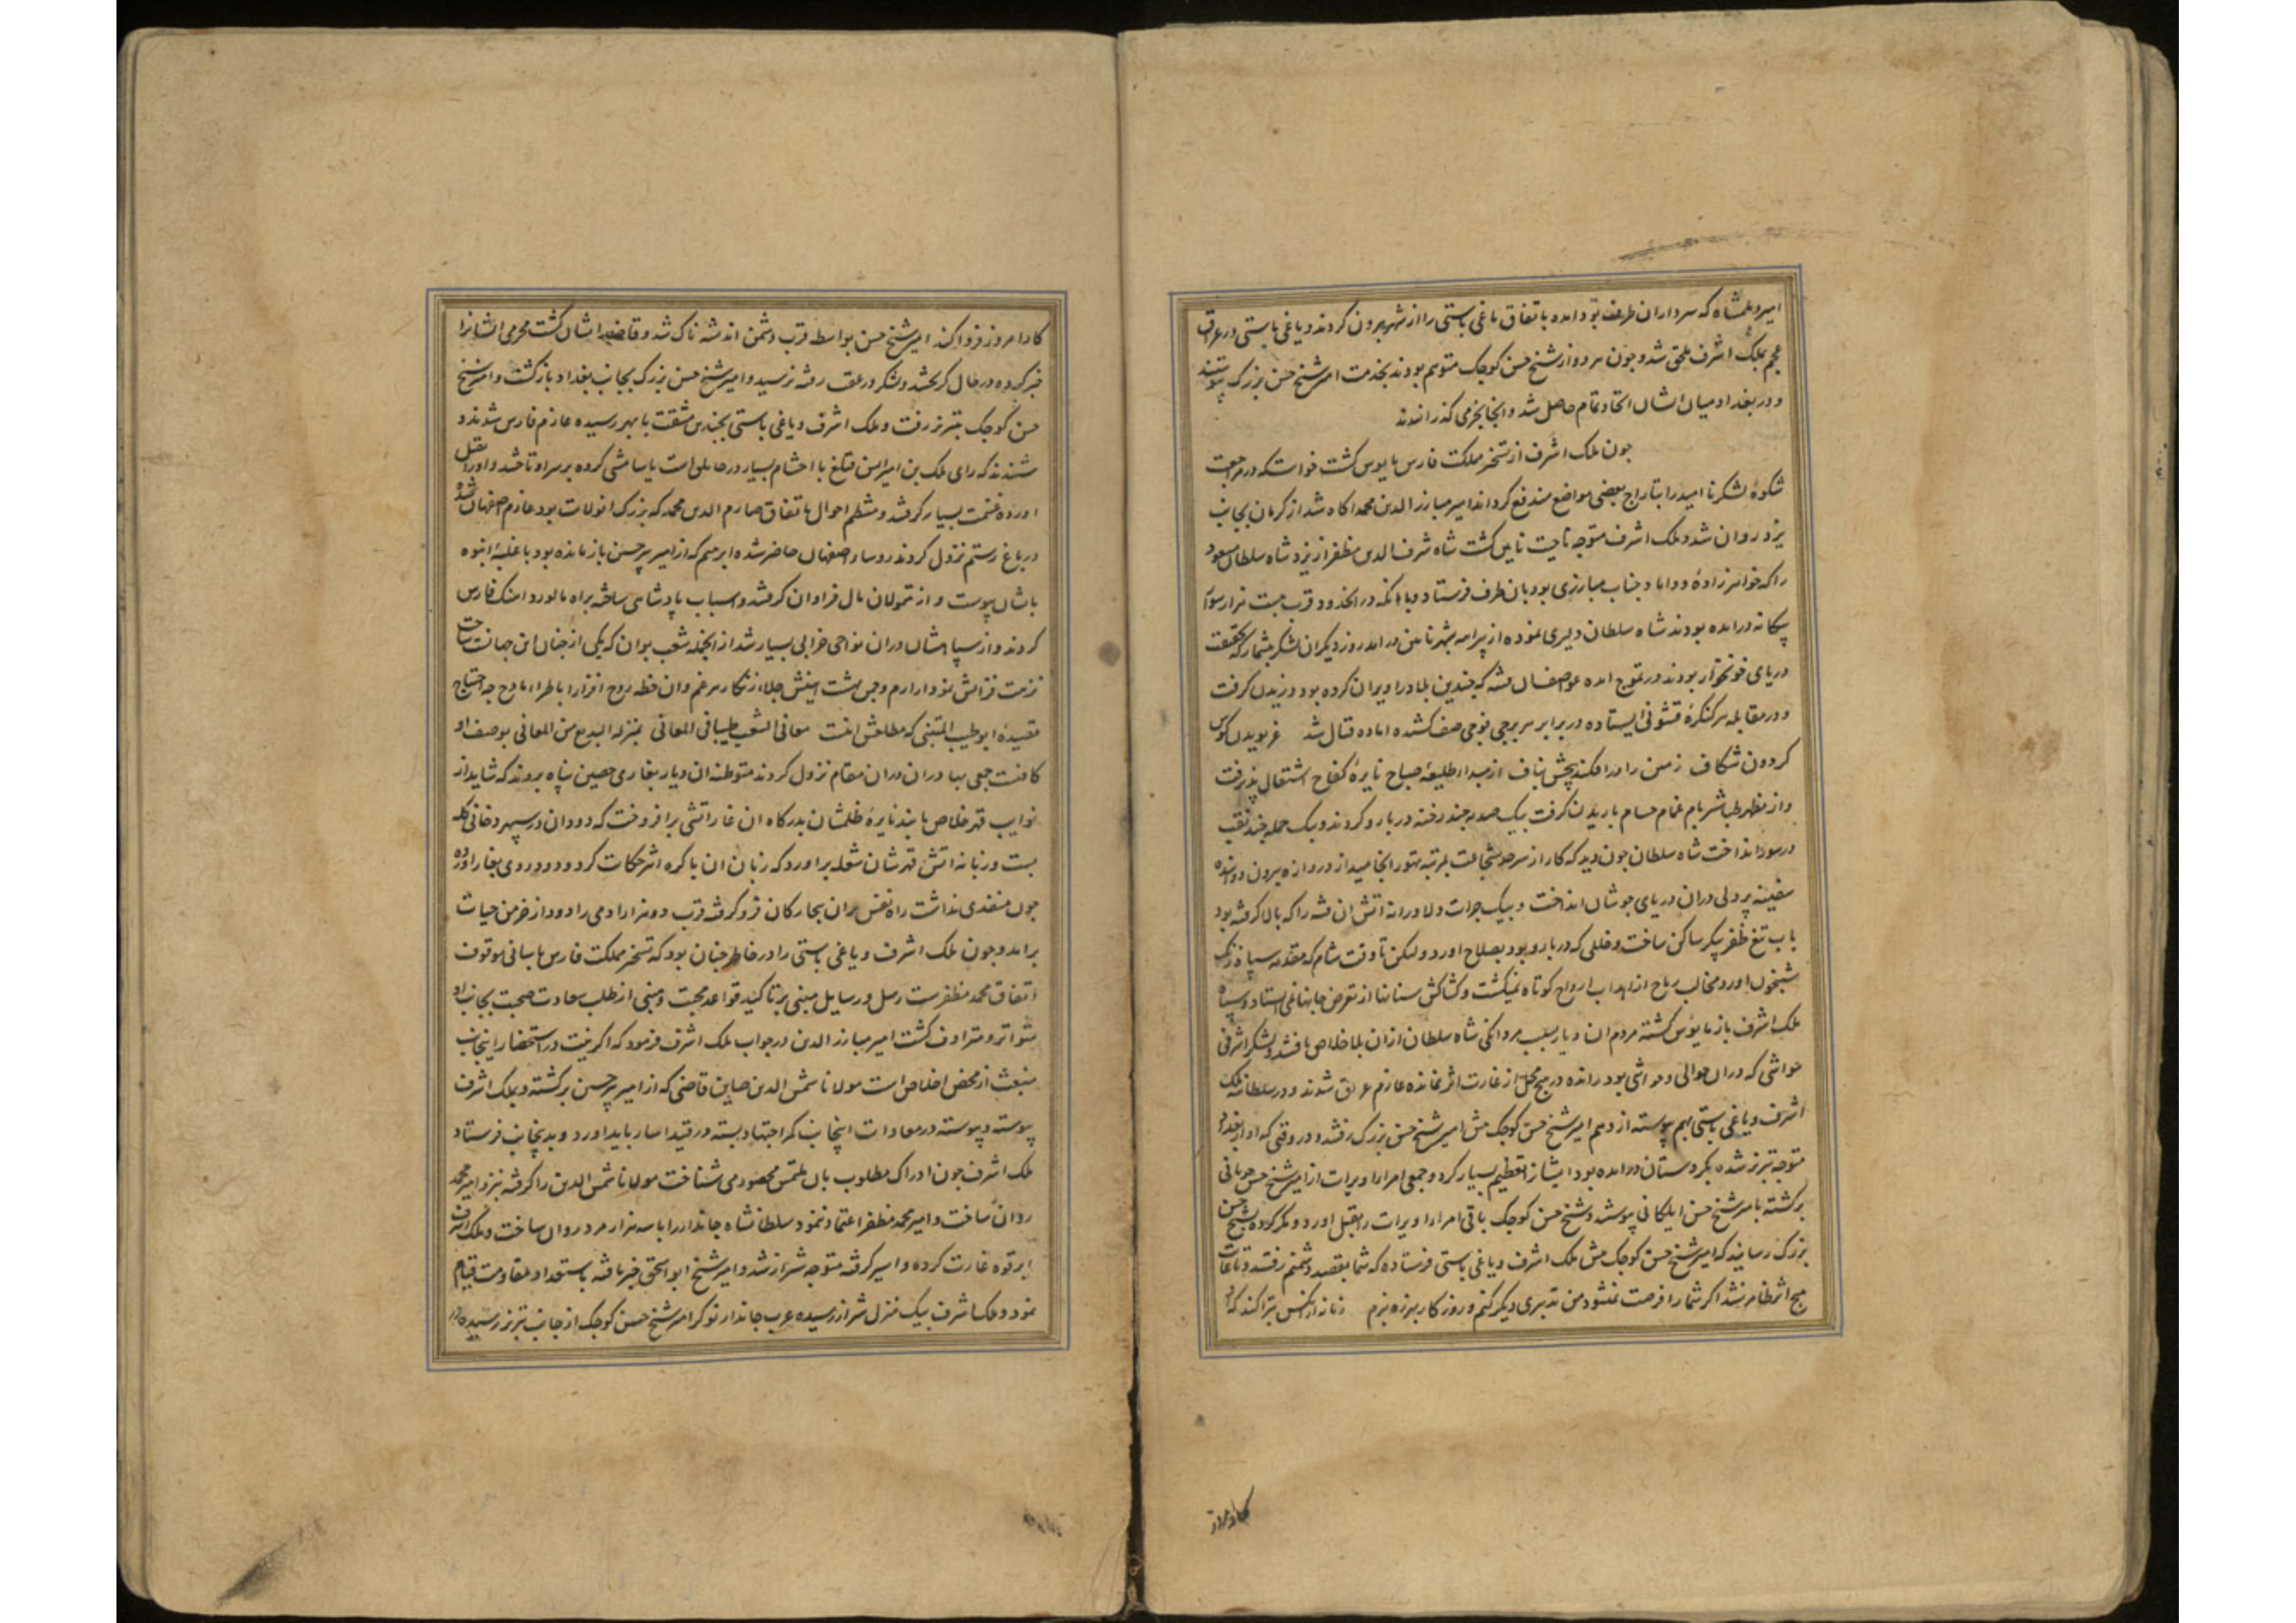 امیر و علمشاه که سرداران طرف بودند با اتفاق یاغی باستی را از شهر بیرون کردند و یاغی باستی در عراق
عجم بملک اشرف ملحق شد و جون هر دو از شیخ حسن کوجک متوهم بودند بخدمت امیر شیخ حسن بزرک پیوستند
و در بغداد میان ایشان اتحاد تمام حاصل شد و انجا بخرمی کذرانیدند
جون ملک اشرف از تسخیر مملکت فارس مایوس کشت خواست که در مراجعت
شکوهٔ لشکر نا امید را بتاراج بعضی مواضع مندفع کرداند امیر مبارز الدین محمد اکاه شد از کرمان بجانب
یزد روان شد و ملک اشرف متوجه ناحیت نایین کشت شاه شرف الدین مظفر از یزد شاه سلطان مسعود
را که خواهرزادهٔ و داماد جناب مبارزی بود بان طرف فرستاد و با انکه در ان حدود قرب بیست هزار سوار
بیکانه درامده بودند شاه سلطان دلیری نموده از پیرامه بشهر نایین درامد روز دیکر ان لشکر بیشمار که بحقیقت
دریای خونخوار بودند در تموج امده عواصف ان فتنه که جندین بلاد را ویران کرده بود وزیدن کرفت
و در مقابله هر کنکرهٔ قشونی ایستاده در برابر هر برجی فوجی صف کشیده اماده قتال شد غریویدن کوس
کردون شکاف زمین را درافکند پیچش بناف از مبدا طلیعهٔ صباح نایرهٔ کفاح اشتعال پذیرفت
و از مظهر طباشیر بام غمام حسام باریدن کرفت بیک صدمه جند رخنه در بارو کردند و بیک حمله جند نقب
در سور انداخت شاه سلطان جون دید که کار از سرحد شجاعت بمرتبه تهور انجامید از دروازه بیرون دوانیده
سفینه پردلی دران دریای جوشان انداخت و بیک جرات دلاورانه اتش ان فتنه را که بالا کرفته بود
باب تیغ ظفر پیکر ساکن ساخت و خللی که در بارو بود بصلاح اورد و لیکن تا وقت شام که مقدمه سپاه زنک
شبیخون اورد مخالب رماح از اهداب ارواح کوتاه نمیکشت و کشاکش سنانها از تعرض جانها نمی ایستاد و سپاه
ملک اشرف باز مایوس کشته مردم ان دیار بسبب مردانکی شاه سلطان ازان بلا خلاص یافتند و لشکر اشرفی
مواشی که دران حوالی و حواشی بود رانده در هیج محل از غارت اثر نمانده عازم عراق شوند و در سلطانیه ملک
اشرف و یاغی باستی بهم پیوسته از وهم امیر شیخ حسن کوجک پیش امیر شیخ حسن بزرک رفتند و در وقتی که او از بغداد
متوجه تبریز شده بکردستان درامده بود ایشانرا تعظیم بسیار کرد و جمعی امراء اویرات از امیر شیخ حسن جوبانی
برکشته بامیر شیخ حسن ایلکانی پیوستند و شیخ حسن کوجک باقی امراء اویرات را بقتل اورد و مکر کرده بشیخ حسن
بزرک رسانید که امیر شیخ حسن کوجک پیش ملک اشرف و یاغی باستی فرستاده که شما بقصد دشمنم رفتید و تا غایت
هیج اثر ظاهر نشد اکر شما را فرصت نمیشود من تدبیری دیکر کنم و روزکار نبرده نبرم زنانه از انکس بترا کند که او
کار امروز
کار امروز فردا کند امیر شیخ حسن بواسطه قرب دشمن اندیشه ناک شد و قاصد ایشان کشت محرمی ایشانرا
خبر کرده در حال کریختند و لشکر در عقب رفته نرسید و امیر شیخ حسن بزرک بجانب بغداد بازکشت و امیر شیخ
حسن کوجک بتبریز رفت و ملک اشرف و یاغی باستی بجندین مشقت بابهر رسیده عازم فارس شوند و
شنیدند که رای ملک بن امیر ایسن قتلغ با احشام بسیار در حایلی است یاسامشی کرده بر سر او تاختند و او را بقتل
اورده غنیمت بسیار کرفتند و منتظم احوال باتفاق صارم الدین محمد که بزرک ان ولایت بود عازم اصفهان شده
در باغ رستم نزول کردند روساء اصفهان حاضر شده ابراهیم که از امیر پیر حسین بازمانده بود با غلبهٔ انبوه
بایشان پیوست و از متمولان مال فراوان کرفتند و اسباب پادشاهی ساخته براه مالورد اهنک فارس
کردند و از سپاه ایشان دران نواحی خرابی بسیار شد از انجمله شعب بوان که یکی از جنان این جهانست ساحت
نزهت فزایش نمودار ارم و جمن بهشت ایینش جلاء زنکار هر غم وان خطه روح افزا را با طراء مادح جه احتیاج
قصیدهٔ ابو طیب المتنبی که مطلعش اینست مغانی الشعب طیبا فی المغانی بمنزله الربیع من الزمان بوصف او
کافیست جمعی بهادران دران مقام نزول کردند متوطنه ان دیار بغاری حصین پناه بردند که شاید از
نوایب قهر خلاص یابند نایرهٔ ظلمشان بدرکاه ان غار اتشی برافروخت که دود ان در سپهر دخانی کله
بست و زبانه اتش قهرشان شعله براورد که زبان ان با کره اثیر حکایت کرد و دود روی بغار اورده
جون منفذی نداشت راه نفس بران بیجارکان فرو کرفته قرب دو هزار ادمی را دود از خرمن حیات
برامد و جون ملک اشرف و یاغی باستی را در خاطر جنان بود که تسخیر مملکت فارس باسانی موقوف
اتفاق محمد مظفرست رسل و رسایل مبنی بر تاکید قواعد محبت و مبنی از طلب سعادت صحبت بجانب او
متواتر و مترادف کشت امیر مبارز الدین در جواب ملک اشرف فرمود که اکر نیت در استحضار اینجانب
منبعث از محض اخلاص است مولانا شمس الدین صاین قاضی که از امیر پیر حسین برکشته و بملک اشرف
پیوسته و پیوسته در معادات اینجانب کمر اجتهاد بسته در قید اسار باید اورد و بدینجانب فرستاد
ملک اشرف جون ادراک مطلوب بان ملتمس محصور می شناخت مولانا شمس الدین را کرفته بنزد امیر محمد
روان ساخت و امیر محمد مظفر اعتماد نمود و سلطانشاه جاندار را با سه هزار مرد روان ساخت و ملک اشرف
ابرقوه غارت کرده و اسیر کرفته متوجه شیراز شد و امیر شیخ ابو اسحق خبر یافته باستعداد مقاومت قیام
نمود و ملک اشرف بیک منزل شیراز رسیده عرب جاندار نوکر امیر شیخ حسن کوجک از جانب تبریز رسیده